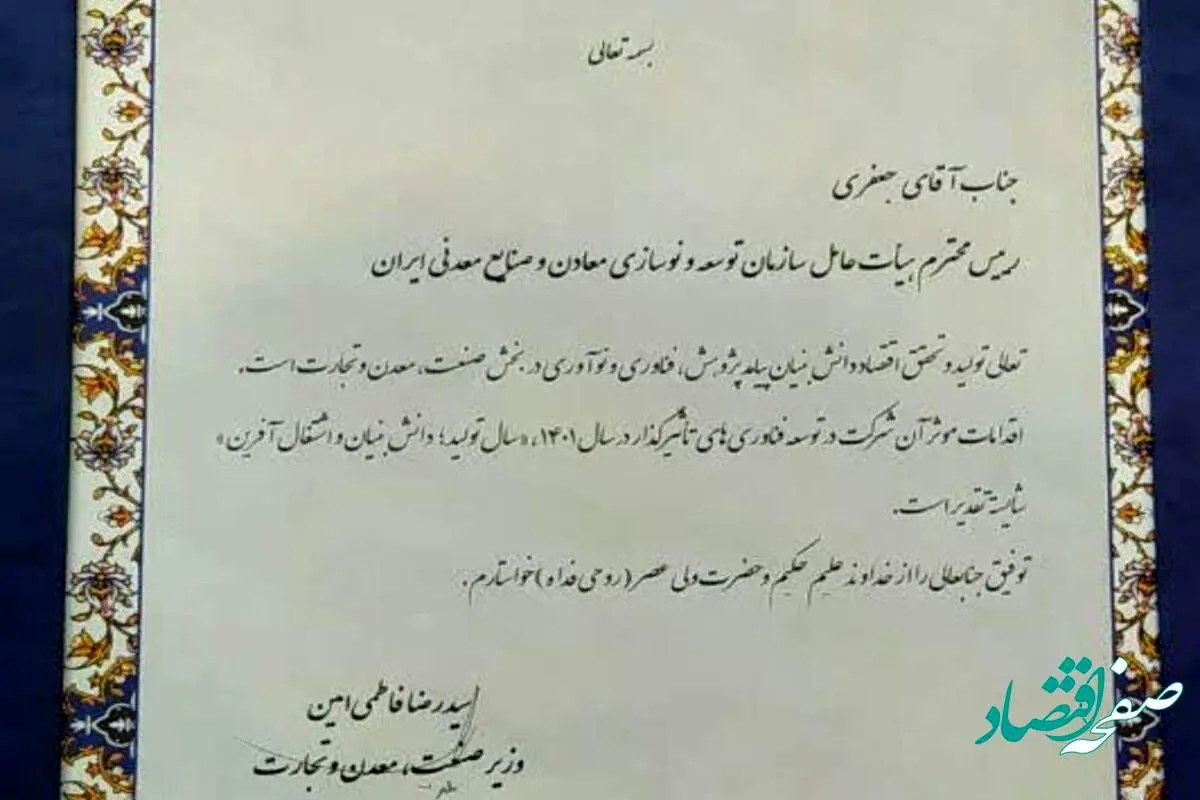 بسمه تعالی
جناب آقای جعفری
رییس محترم هیأت عامل سازمان توسعه و نوسازی معادن و صنایع معدنی ایران
تعالی تولید و تحقق اقتصاد دانش بنیان پیامد پژوهش، فناوری و نوآوری در بخش صنعت، معدن و تجارت است.
اقدامات موثر آن شرکت در توسعه فناوری های تأثیرگذار در سال ۱۴۰۱، «سال تولید؛ دانش بنیان و اشتغال آفرین»
شایسته تقدیر است.
توفیق جنابعالی را از خداوند علیم حکیم و حضرت ولی عصر (روحی فداه) خواستارم.
سیدرضا فاطمی امین
وزیر صنعت، معدن و تجارت
صفحه اقتصاد